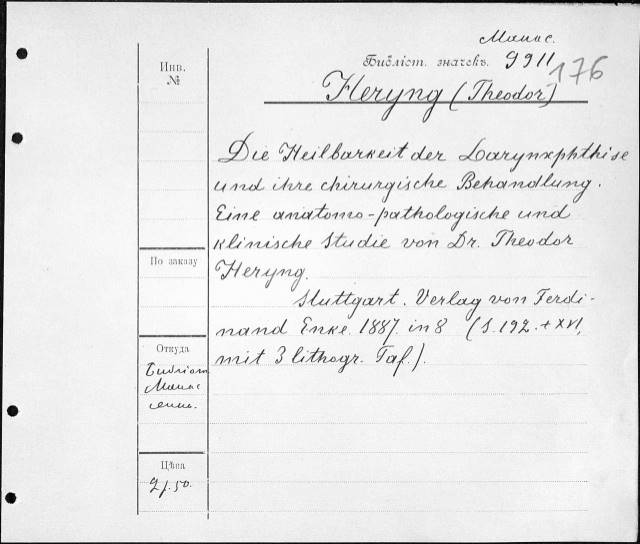 Манас.
Библіот. значекъ. 9911
176
Инв.
№
Heryng (Theodor)
Die Heilbarkeit der Larynxphthise
und ihre chirurgische Behandlung.
Eine anatomo-pathologische und
klinische Studie von Dr. Theodor
Heryng.
По заказу
Stuttgart. Verlag von Ferdi-
nand Enke. 1887. in 8 (S. 192. + XVI,
mit 3 lithogr. Taf.).
Откуда
Библіот
Манас
Цѣна
2 р. 50.